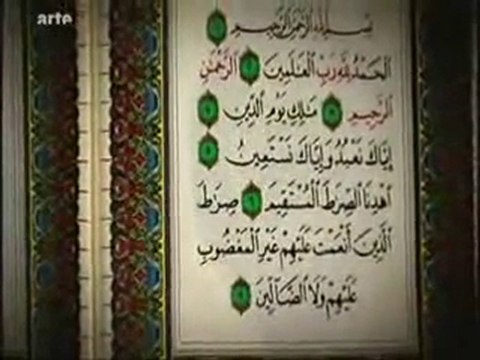 arte
بسم الله الرحمن الرحيم
الحمد لله رب العلمين الرحمن
الرحيم ملك يوم الدين
إياك نعبد وإياك نستعين
اهدنا الصرط المستقيم صرط
الذين أنعمت عليهم غير المغضوب
عليهم ولا الضآلين